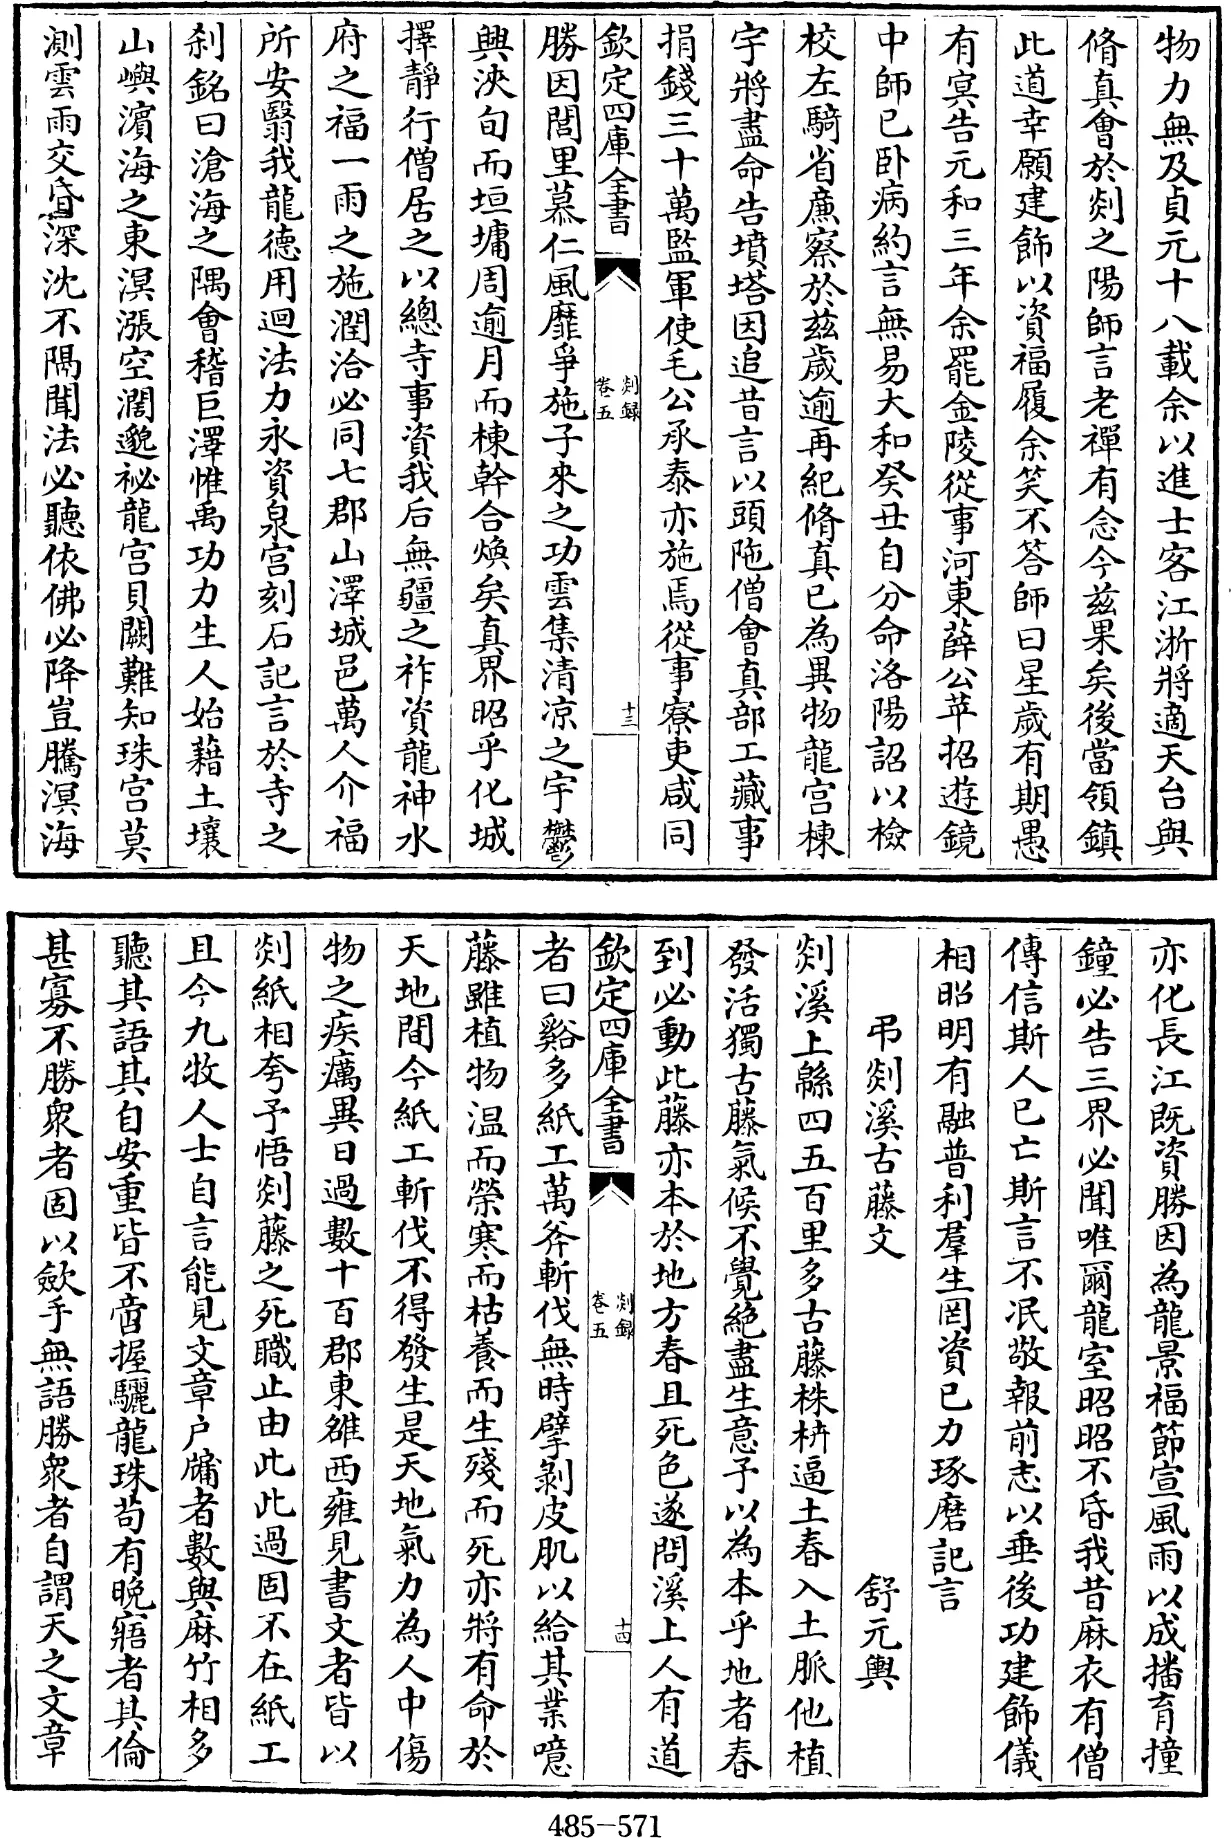 物力無及貞元十八載余以進士客江浙將適天台與
脩真會於剡之陽師言老禪有念今茲果矣後當領鎮
此道幸願建飾以資福履余笑不答師曰星歲有期愚
有冥告元和三年余罷金陵從事河東薛公苹招遊鏡
中師已卧病約言無易大和癸丑自分命洛陽詔以檢
校左騎省廉察於茲歲逾再紀脩真已為異物龍宮棟
宇將盡命告墳塔因追昔言以頭陁僧會真部工藏事
捐錢三十萬監軍使毛公承泰亦施焉從事寮吏咸同
欽定四庫全書
剡録
卷五
十三
勝因閭里慕仁風靡爭施子來之功雲集清凉之宇欝
興浹旬而垣墉周逾月而棟幹合煥矣真界昭乎化城
擇靜行僧居之以總寺事資我后無疆之祚資龍神水
府之福一雨之施潤洽必同七郡山澤城邑萬人介福
所安翳我龍德用迴法力永資泉宮刻石記言於寺之
刹銘曰滄海之隅會稽巨澤惟禹功力生人始藉土壤
山嶼濱海之東溟漲空濶邈祕龍宫貝闕難知珠宫莫
測雲雨交昏深沈不隅聞法必聽依佛必降豈騰溟海
亦化長江既資勝因為龍景福節宣風雨以成播育撞
鐘必告三界必聞唯爾龍室昭昭不昏我昔麻衣有僧
傳信斯人已亡斯言不泯敬報前志以垂後功建飾儀
相昭明有融普利羣生罔資已力琢磨記言
弔剡溪古藤文 舒元輿
剡溪上緜四五百里多古藤株枿逼土春入土脈他植
發活獨古藤氣候不覺絶盡生意予以為本乎地者春
到必動此藤亦本於地方春且死色遂問溪上人有道
欽定四庫全書
剡録
卷五
十四
者曰谿多紙工萬斧斬伐無時擘剝皮肌以給其業噫
藤雖植物温而榮寒而枯養而生殘而死亦將有命於
天地間今紙工斬伐不得發生是天地氣力為人中傷
物之疾癘異日過數十百郡東雒西雍見書文者皆以
剡紙相夸予悟剡藤之死職止由此此過固不在紙工
且今九牧人士自言能見文章户牖者數與麻竹相多
聽其語其自安重皆不啻握驪龍珠苟有晚寤者其倫
甚寡不勝衆者固以歛手無語勝衆者自謂天之文章
485-571